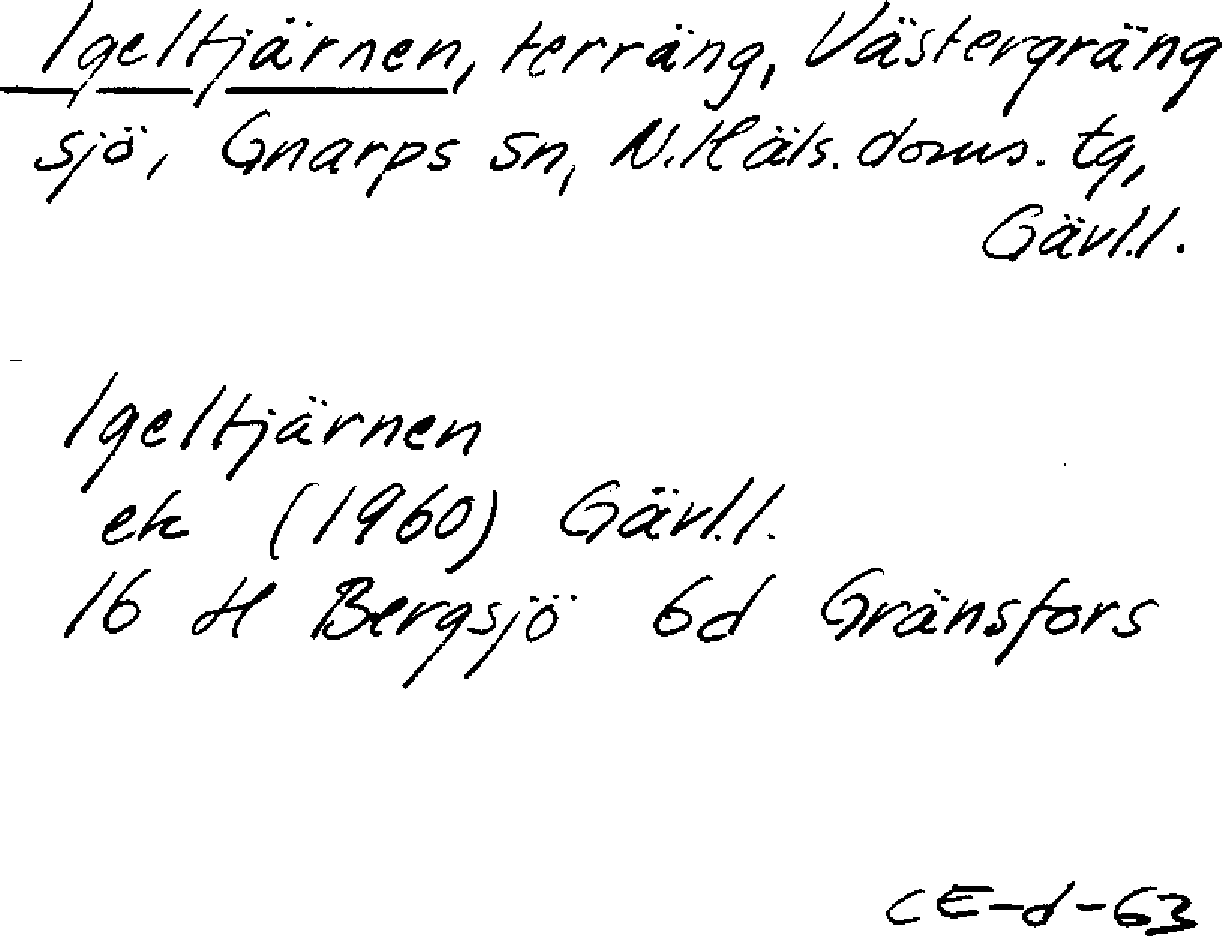 Igeltjärnen, terräng, Västergräng
sjö, Gnarps sn, N.Häls. doms. tg,
Gävl.l.
Igeltjärnen
ek (1960) Gävl.l.
16 H Bergsjö 6d Gränsfors
CE-d-63